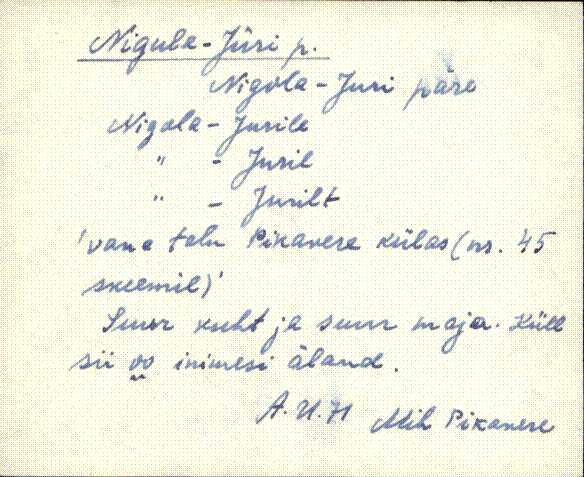 Nigula-Jüri p.
Nigola-Juri päre
Nigola-Jurile
" - Juril
" - Jurilt
'vana talu Pikavere külas (nr. 45
skeemil)'
Suur kuht ja suur maja. Küll
sii oo inimesi äland.
A.U.71 Mih Pikavere